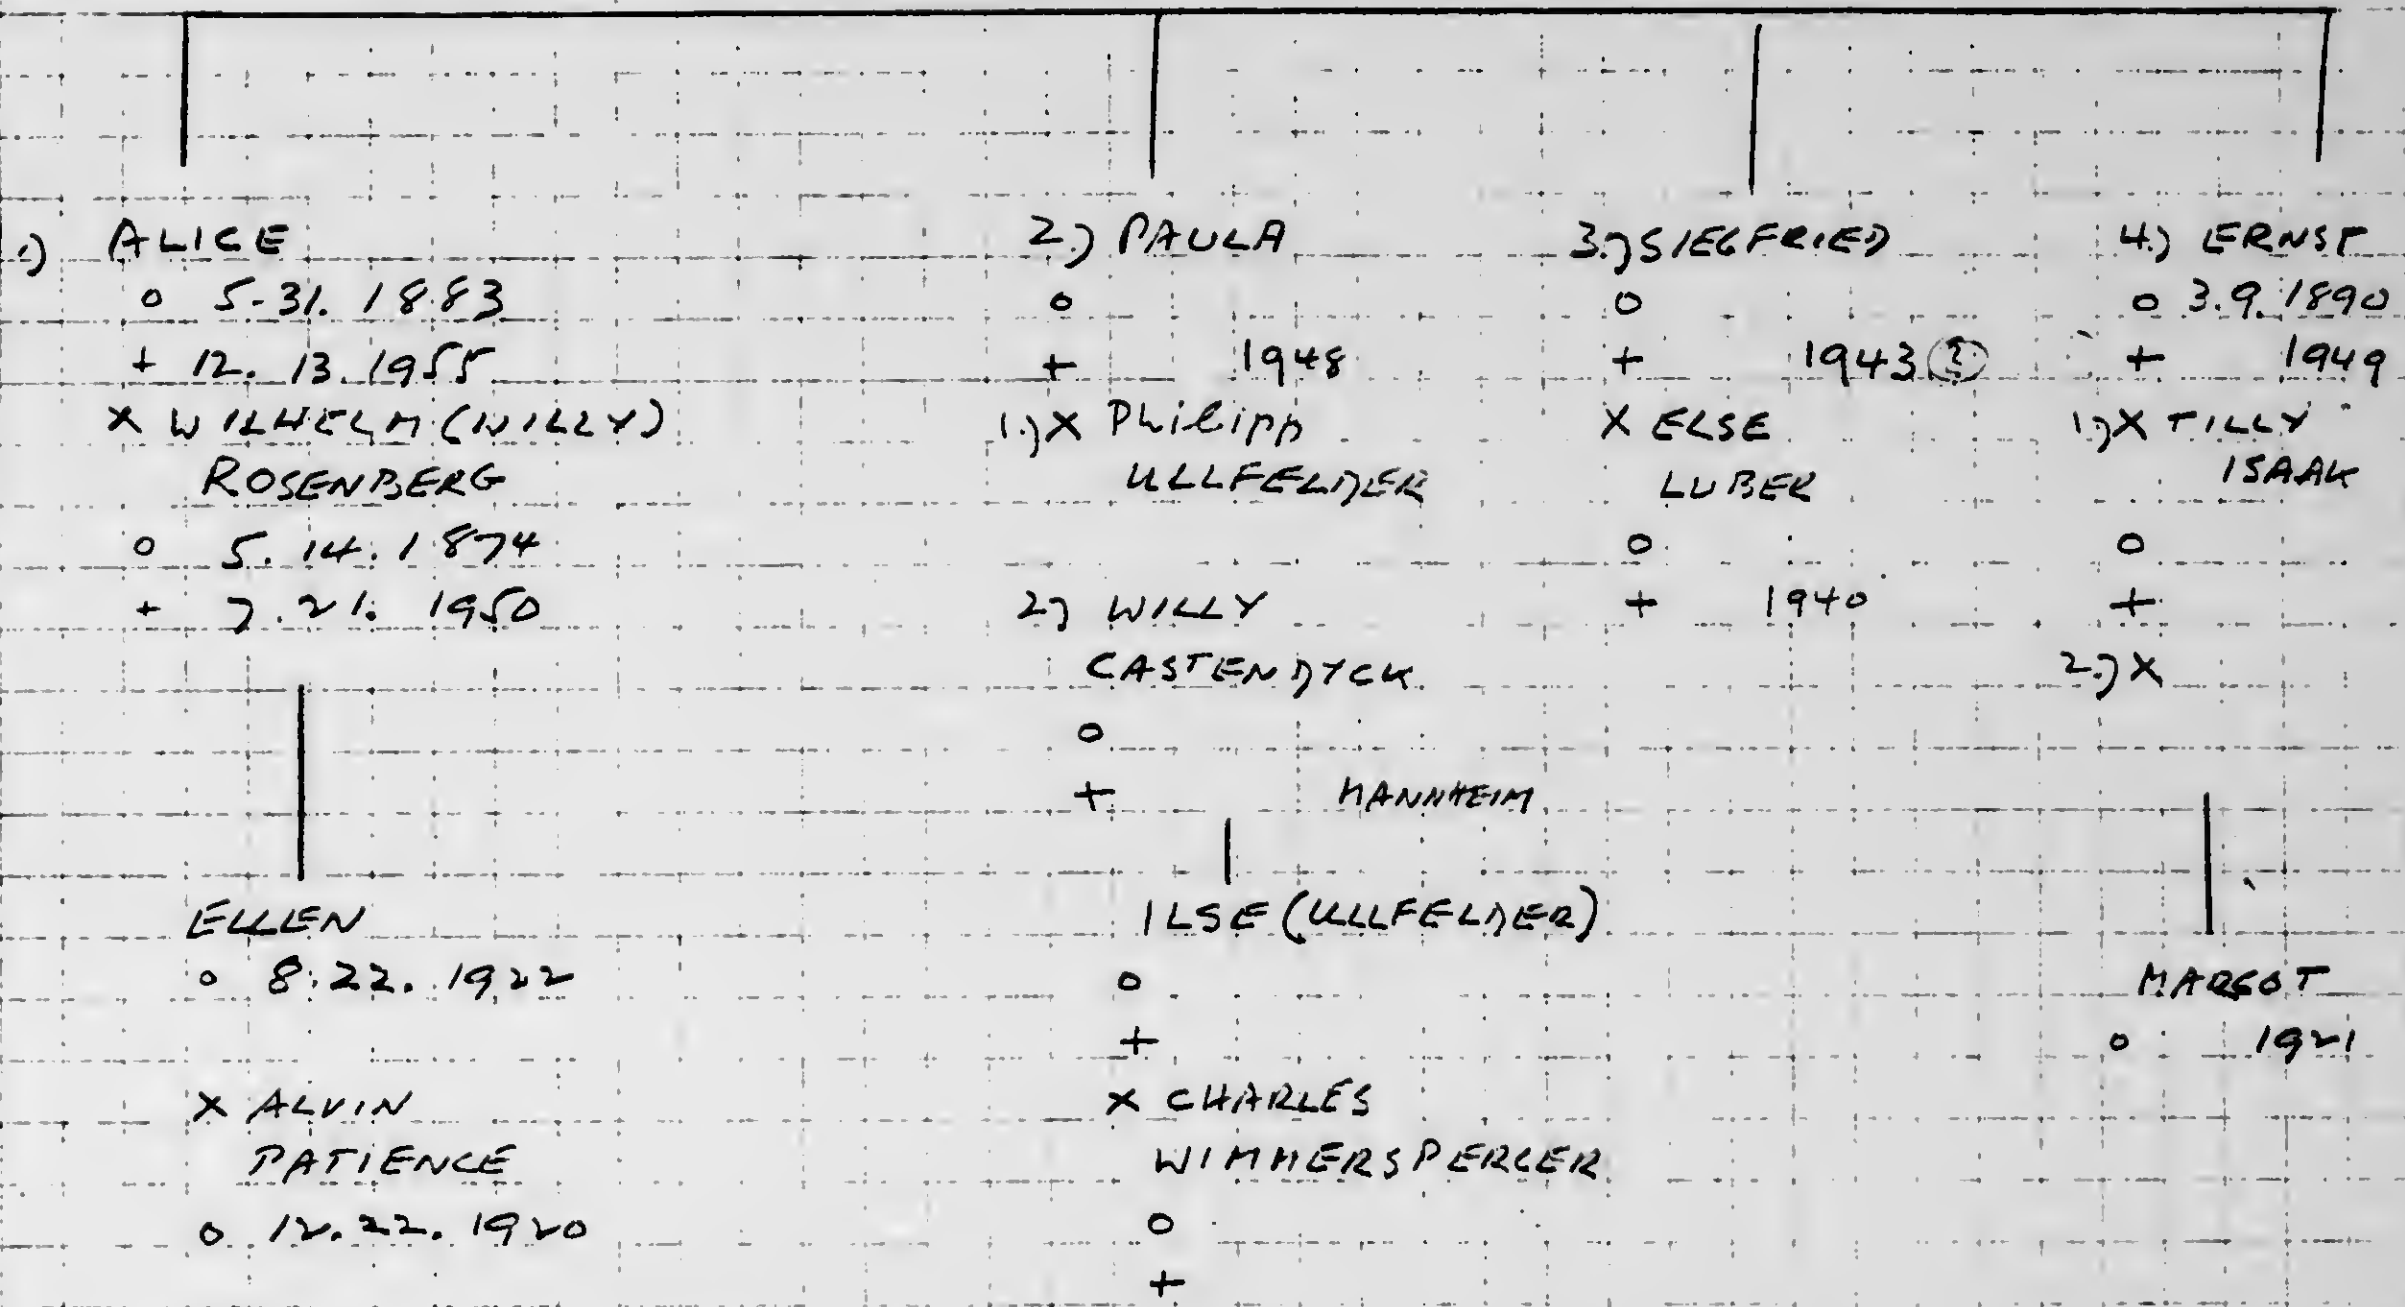 1.) ALICE
o 5-31. 1883
+ 12. 13. 1955
X WILHELM (WILLY)
ROSENBERG
o 5. 14. 1874
+ 7. 21. 1950
ELLEN
o 8. 22. 1922
X ALVIN
PATIENCE
o 12. 22. 1920
2.) PAULA
o
+ 1948
1.) X Philipp
ULLFELDER
2.) WILLY
CASTENDYCK
o
+ MANNHEIM
ILSE (ULLFELDER)
o
+
X CHARLES
WIMMERSPERGER
o
+
3.) SIEGFRIED
o
+ 1943 (?)
X ELSE
LUBER
o
+ 1940
4.) ERNST
o 3. 9. 1890
+ 1949
1.) X TILLY
ISAAK
o
+
2.) X
MARGOT
o 1921